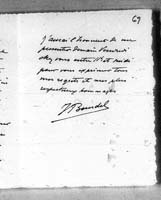 69
J'aurai l'honneur de me
présenter demain Vendredi
chez vous entre 1h et midi
pour vous exprimer tous
mes regrets et mes plus
respectueux hommages